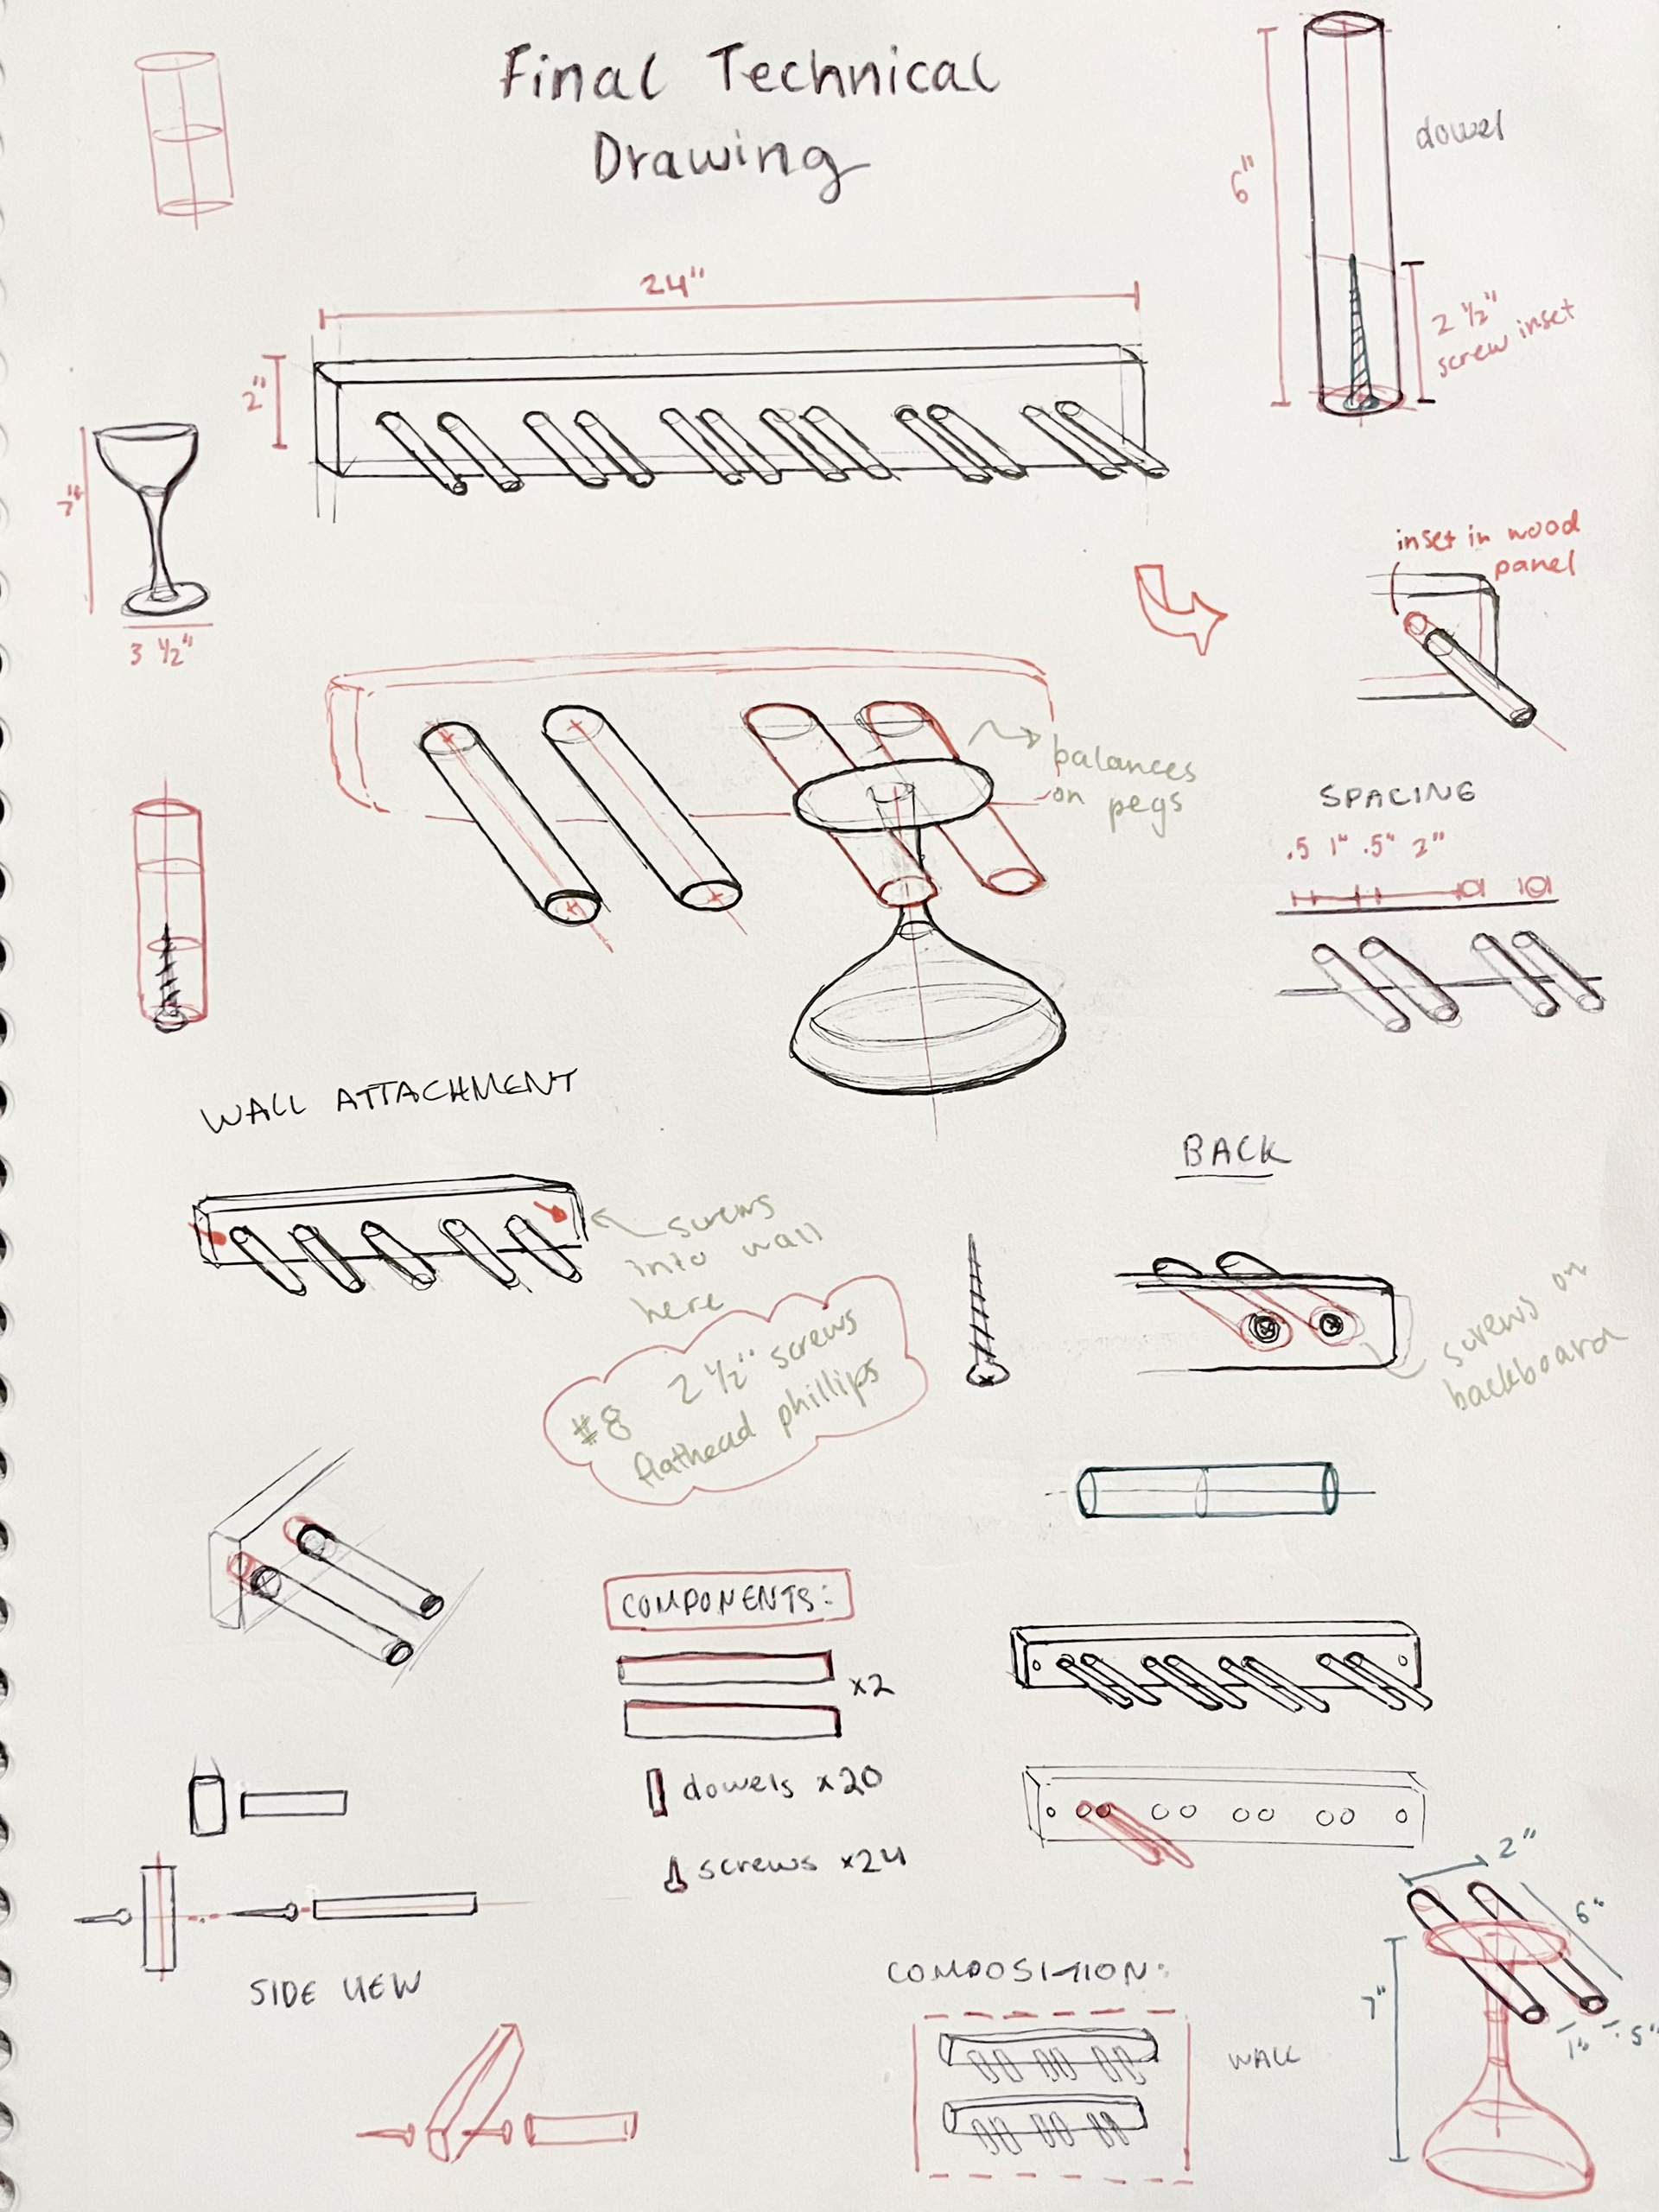 Final Technical
Drawing
6"
dowel
2 ½"
screw inset
24"
2"
7"
3 ½"
inset in wood
panel
balances
on pegs
SPACING
.5 1" .5" 2"
WALL ATTACHMENT
screws
into wall
here
#8 2 ½" screws
flathead phillips
BACK
screws on
backboard
COMPONENTS:
x2
dowels x20
screws x24
SIDE VIEW
COMPOSITION:
WALL
2"
6"
7"
1"
.5"